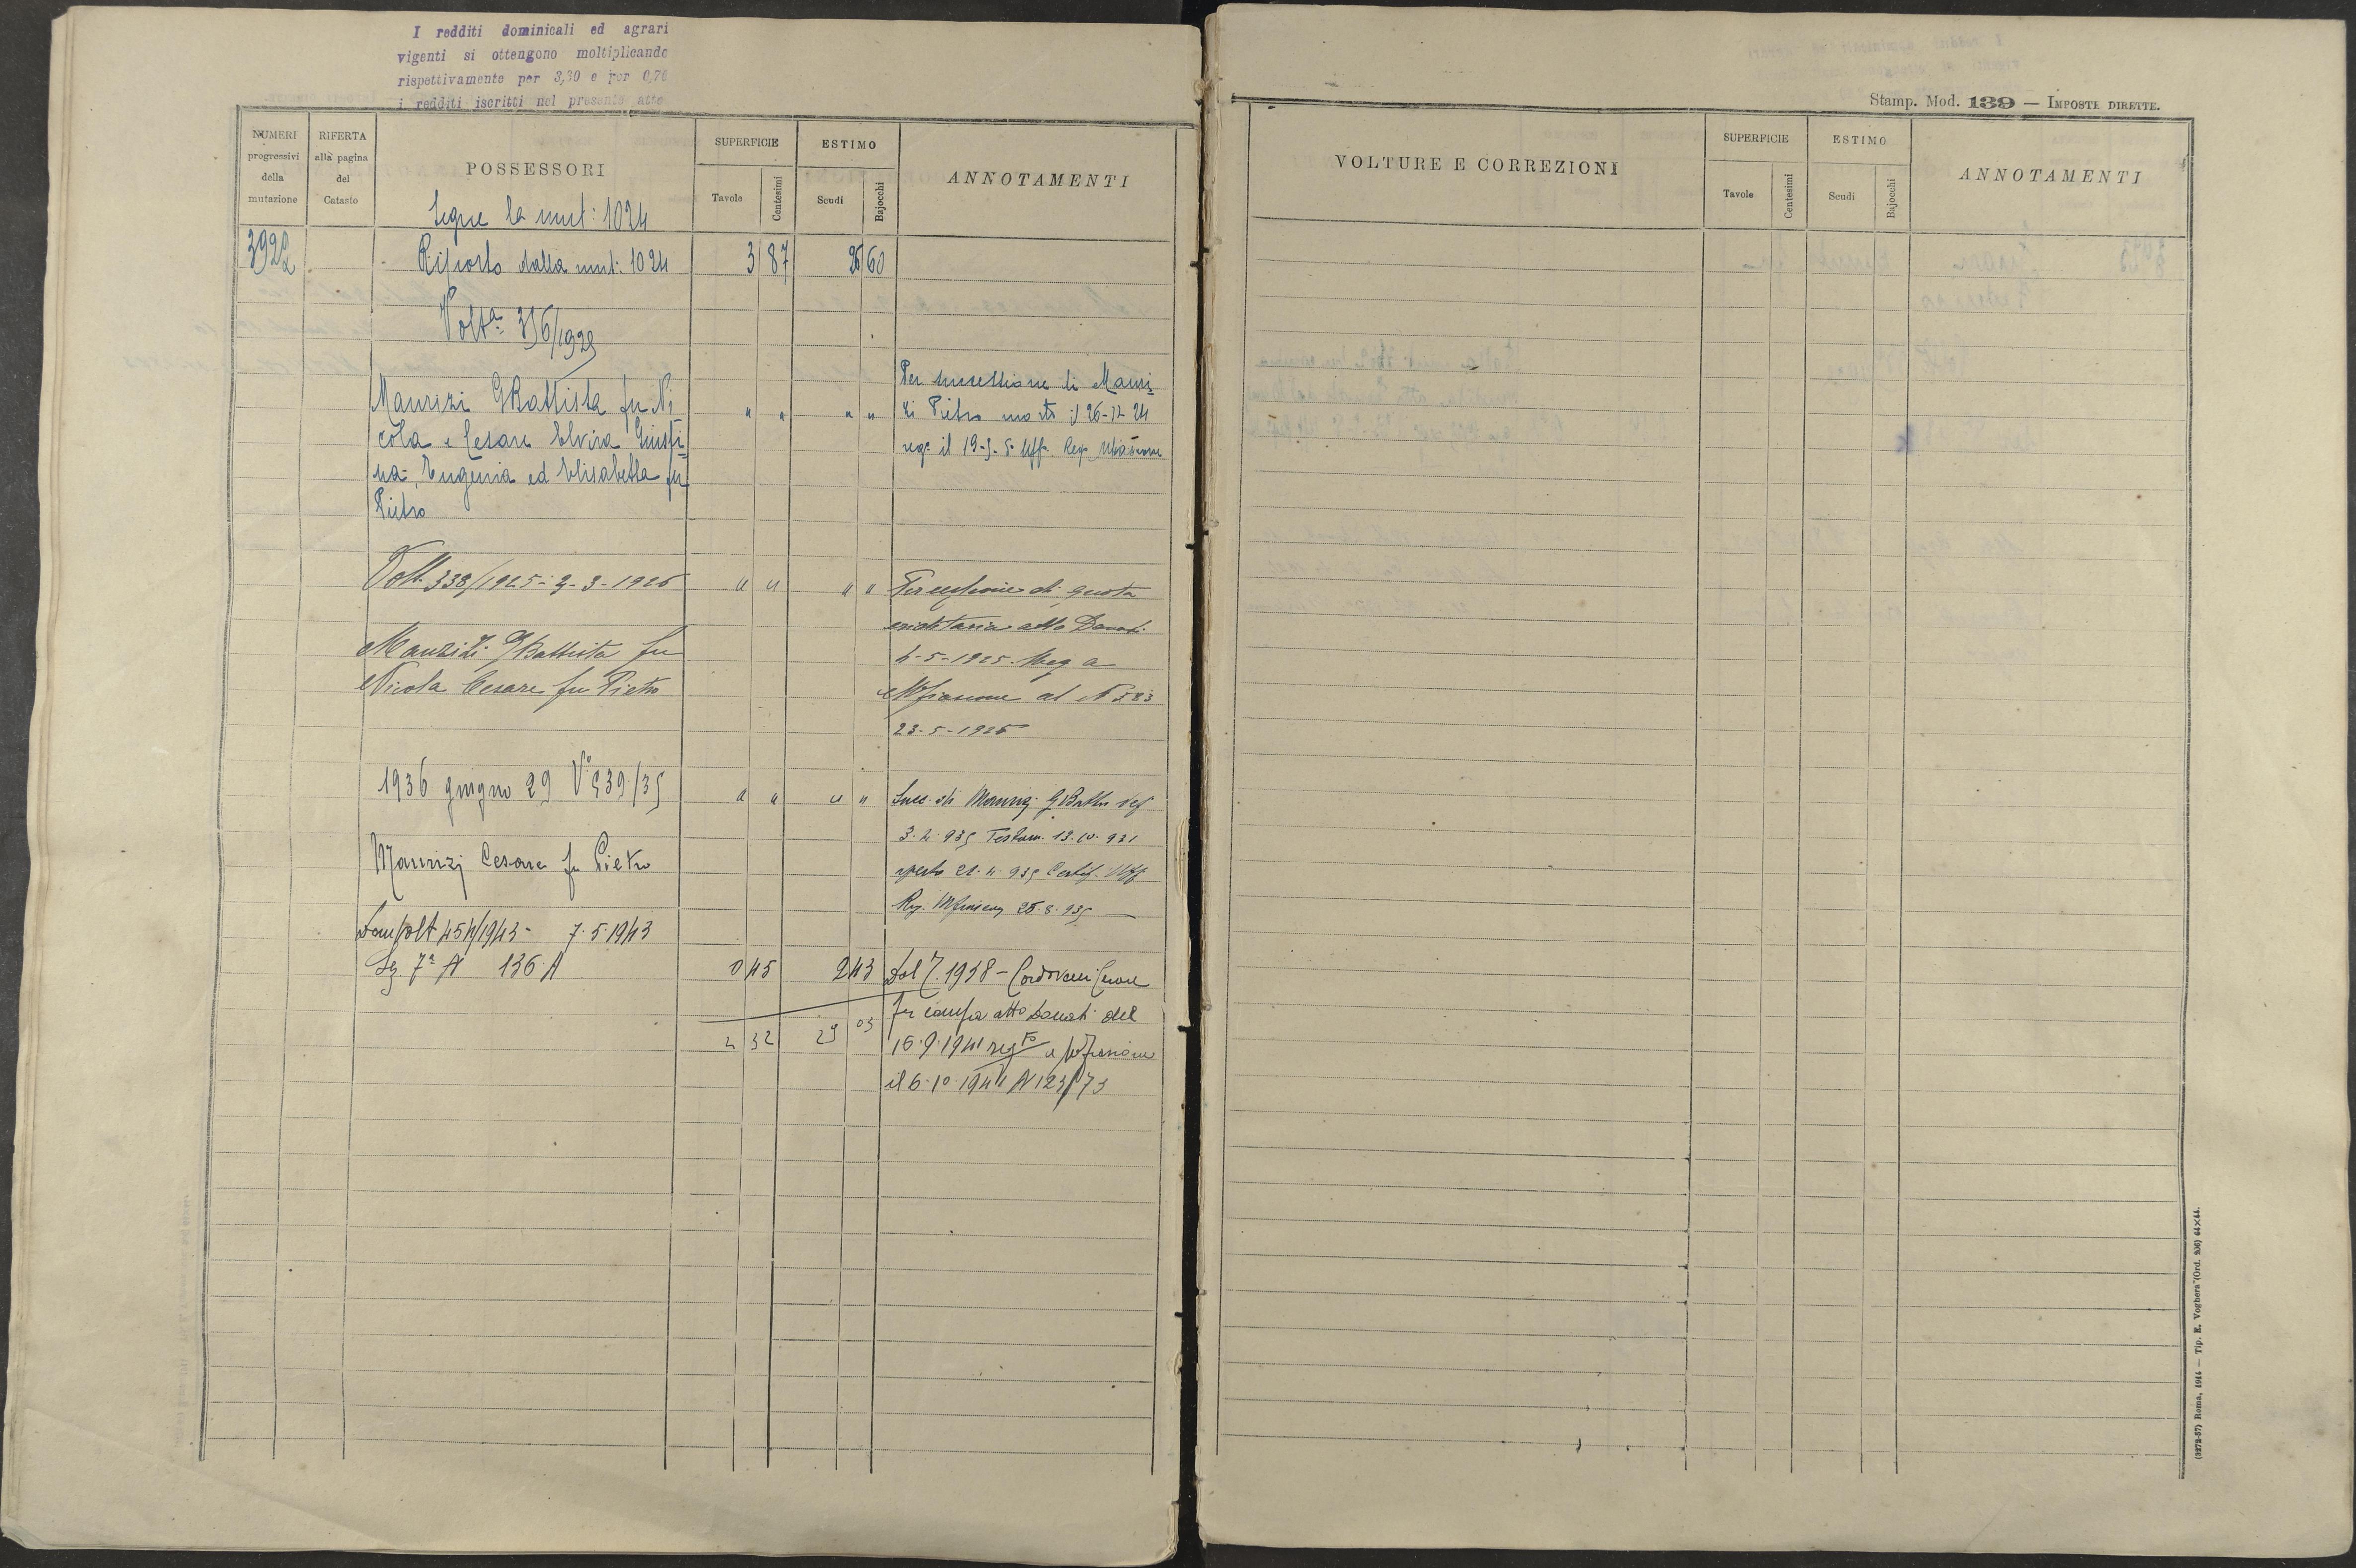 I redditi dominicali ed agrari
vigenti si ottengono moltiplicando
rispettivamente per 3,30 e per 0,70
i redditi iscritti nel presente atto
NUMERI progressivi della mutazione
RIFERTA alla pagina del Catasto
POSSESSORI
SUPERFICIE
Tavole
Centesimi
ESTIMO
Scudi
Bajocchi
ANNOTAMENTI
Segue la mut: 1024
3922 Riporto dalla mut: 1024 3 87 26 60
Volt.a 316/1925
Maurizi GBattista fu Ni-
cola e Cesare Elvira Giusti=
na, Eugenia ed Elisabetta fu
Pietro
" " " "
Per successione di Mauri=
zi Pietro morto il 26-12-24
reg. il 19-5- Uff. Reg.
Volt. 338/1925 - 3-3-1926 " " " "
Per cessione di quota
ereditaria atto Donati
4-5-1925. Reg a
al N 583
23-5-1925
Maurizi GBattista fu
Nicola Cesare fu Pietro
1936 giugno 29 V° 239/35 " " " "
Succ. di Maurizi GBatta
3.4.935 Testam. 13.10.931
aperto 21.4.935 Certif. Uff
Reg. 25.8.935
Maurizj Cesare fu Pietro
454/1943 - 7.5.1943
Sez. 7a N 136 A 0 45 2 43
Dal 7.1938 - Cordovani Cesare
per compra atto Donati del
16.9.1941 reg.to a
il 6.10.1941 N 123/73
4 32 29 03
Stamp. Mod. 139 — IMPOSTE DIRETTE.
VOLTURE E CORREZIONI
SUPERFICIE
Tavole
Centesimi
ESTIMO
Scudi
Bajocchi
ANNOTAMENTI
(3272-57) Roma, 1914 — Tip. E. Voghera (Ord. 206) 64×44.